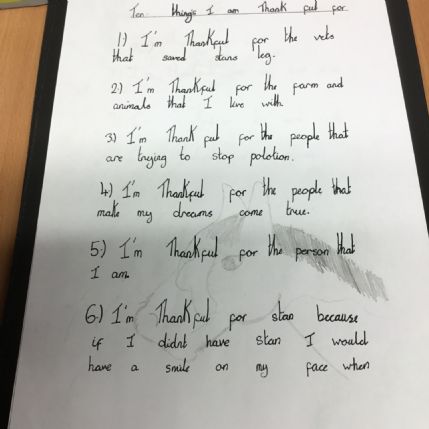 Ten things I am Thank ful for
1.) I'm Thankful for the vets
that saved stans leg.
2.) I'm Thankful for the farm and
animals that I live with
3.) I'm Thank ful for the people that
are trying to stop polotion.
4.) I'm Thankful for the people that
make my dreams come true.
5.) I'm Thankful for the person that
I am.
6.) I'm Thank ful for stan because
if I didnt have stan I would
have a smile on my face when